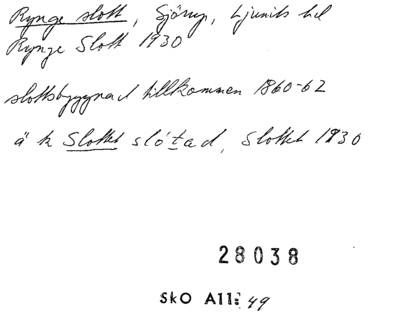 Rynge slott, Sjörup, Ljunits hd
Rynge Slott 1930
slottsbyggnad tillkommen 1860-62
ä k Slottet slótad, Slottet 1930
28038
Sko All: 49